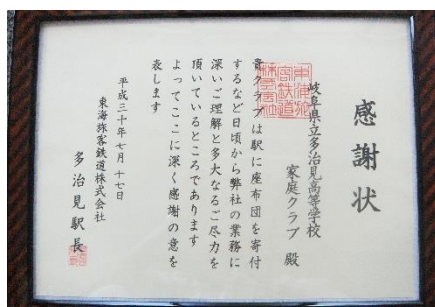 感謝状
岐阜県立多治見高等学校
家庭クラブ 殿
貴クラブは駅に座布団を寄付
するなど日頃から弊社の業務に
深いご理解と多大なるご尽力を
頂いているところであります
よってここに深く感謝の意を
表します
平成三十年七月十七日
東海旅客鉄道株式会社
多治見駅長